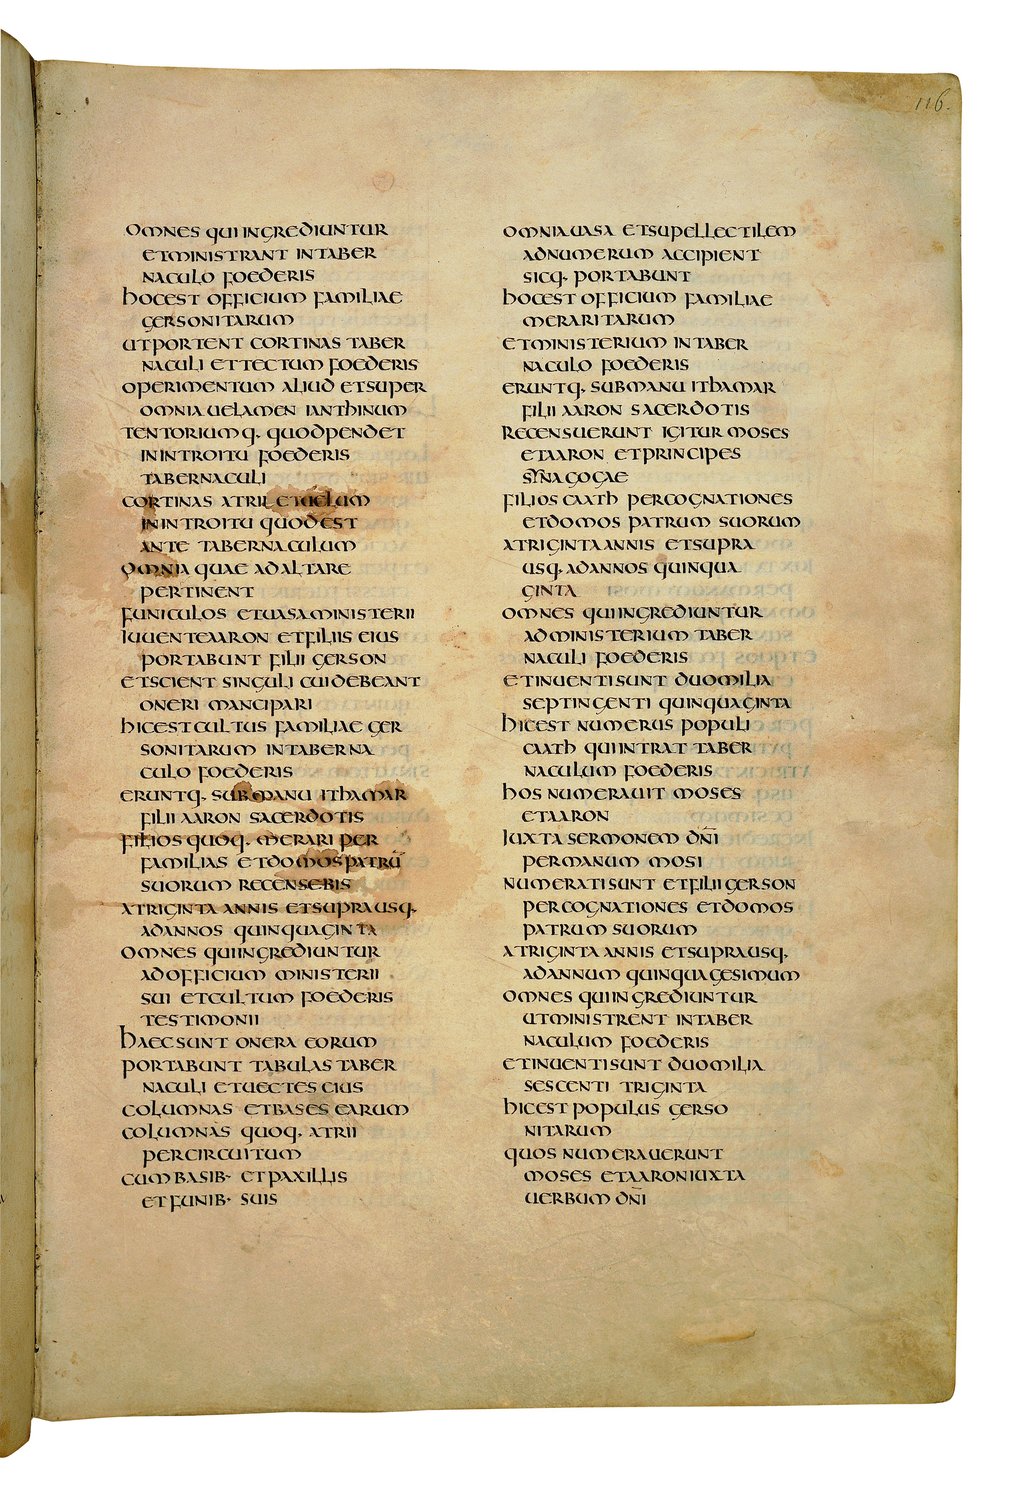 116.
OMNES QUI INGREDIUNTUR
ET MINISTRANT IN TABER
NACULO FOEDERIS
HOC EST OFFICIUM FAMILIAE
GERSONITARUM
UT PORTENT CORTINAS TABER
NACULI ET TECTUM FOEDERIS
OPERIMENTUM ALIUD ET SUPER
OMNIA UELAMEN IANTHINUM
TENTORIUMQ· QUOD PENDET
IN INTROITU FOEDERIS
TABERNACULI
CORTINAS ATRII ET UELUM
IN INTROITU QUOD EST
ANTE TABERNACULUM
OMNIA QUAE AD ALTARE
PERTINENT
FUNICULOS ET UASA MINISTERII
IUUENTE AARON ET FILIIS EIUS
PORTABUNT FILII GERSON
ET SCIENT SINGULI CUI DEBEANT
ONERI MANCIPARI
HIC EST CULTUS FAMILIAE GER
SONITARUM IN TABERNA
CULO FOEDERIS
ERUNTQ· SUB MANU ITHAMAR
FILII AARON SACERDOTIS
FILIOS QUOQ· MERARI PER
FAMILIAS ET DOMOS PATRŪ
SUORUM RECENSEBIS
A TRIGINTA ANNIS ET SUPRA USQ·
AD ANNOS QUINQUAGINTA
OMNES QUI INGREDIUNTUR
AD OFFICIUM MINISTERII
SUI ET CULTUM FOEDERIS
TESTIMONII
HAEC SUNT ONERA EORUM
PORTABUNT TABULAS TABER
NACULI ET UECTES EIUS
COLUMNAS ET BASES EARUM
COLUMNAS QUOQ· ATRII
PER CIRCUITUM
CUM BASIB· ET PAXILLIS
ET FUNIB· SUIS
OMNIA UASA ET SUPELLECTILEM
AD NUMERUM ACCIPIENT
SICQ· PORTABUNT
HOC EST OFFICIUM FAMILIAE
MERARITARUM
ET MINISTERIUM IN TABER
NACULO FOEDERIS
ERUNTQ· SUB MANU ITHAMAR
FILII AARON SACERDOTIS
RECENSUERUNT IGITUR MOSES
ET AARON ET PRINCIPES
SYNAGOGAE
FILIOS CAATH PER COGNATIONES
ET DOMOS PATRUM SUORUM
A TRIGINTA ANNIS ET SUPRA
USQ· AD ANNOS QUINQUA
GINTA
OMNES QUI INGREDIUNTUR
AD MINISTERIUM TABER
NACULI FOEDERIS
ET INUENTI SUNT DUO MILIA
SEPTINGENTI QUINQUAGINTA
HIC EST NUMERUS POPULI
CAATH QUI INTRAT TABER
NACULUM FOEDERIS
HOS NUMERAUIT MOSES
ET AARON
IUXTA SERMONEM DN̄I
PER MANUM MOSI
NUMERATI SUNT ET FILII GERSON
PER COGNATIONES ET DOMOS
PATRUM SUORUM
A TRIGINTA ANNIS ET SUPRA USQ·
AD ANNUM QUINQUAGESIMUM
OMNES QUI INGREDIUNTUR
UT MINISTRENT IN TABER
NACULUM FOEDERIS
ET INUENTI SUNT DUO MILIA
SESCENTI TRIGINTA
HIC EST POPULUS GERSO
NITARUM
QUOS NUMERAUERUNT
MOSES ET AARON IUXTA
UERBUM DN̄I